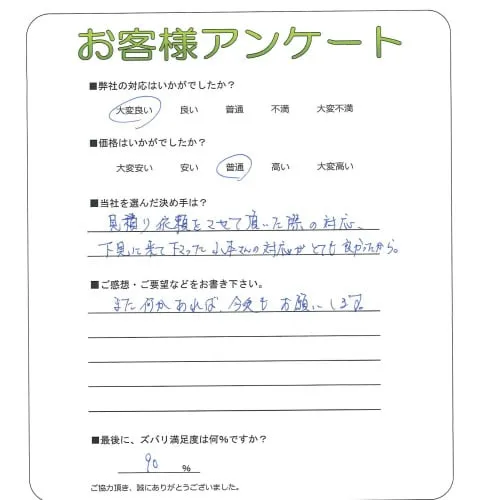 お客様アンケート
■弊社の対応はいかがでしたか？
大変良い 良い 普通 不満 大変不満
■価格はいかがでしたか？
大変安い 安い 普通 高い 大変高い
■当社を選んだ決め手は？
見積り依頼をさせて頂いた際の対応、
下見に来て下さった山本さんの対応がとても良かったから。
■ご感想・ご要望などをお書き下さい。
また何かあれば、今後もお願いします。
■最後に、ズバリ満足度は何%ですか？
90 %
ご協力頂き、誠にありがとうございました。